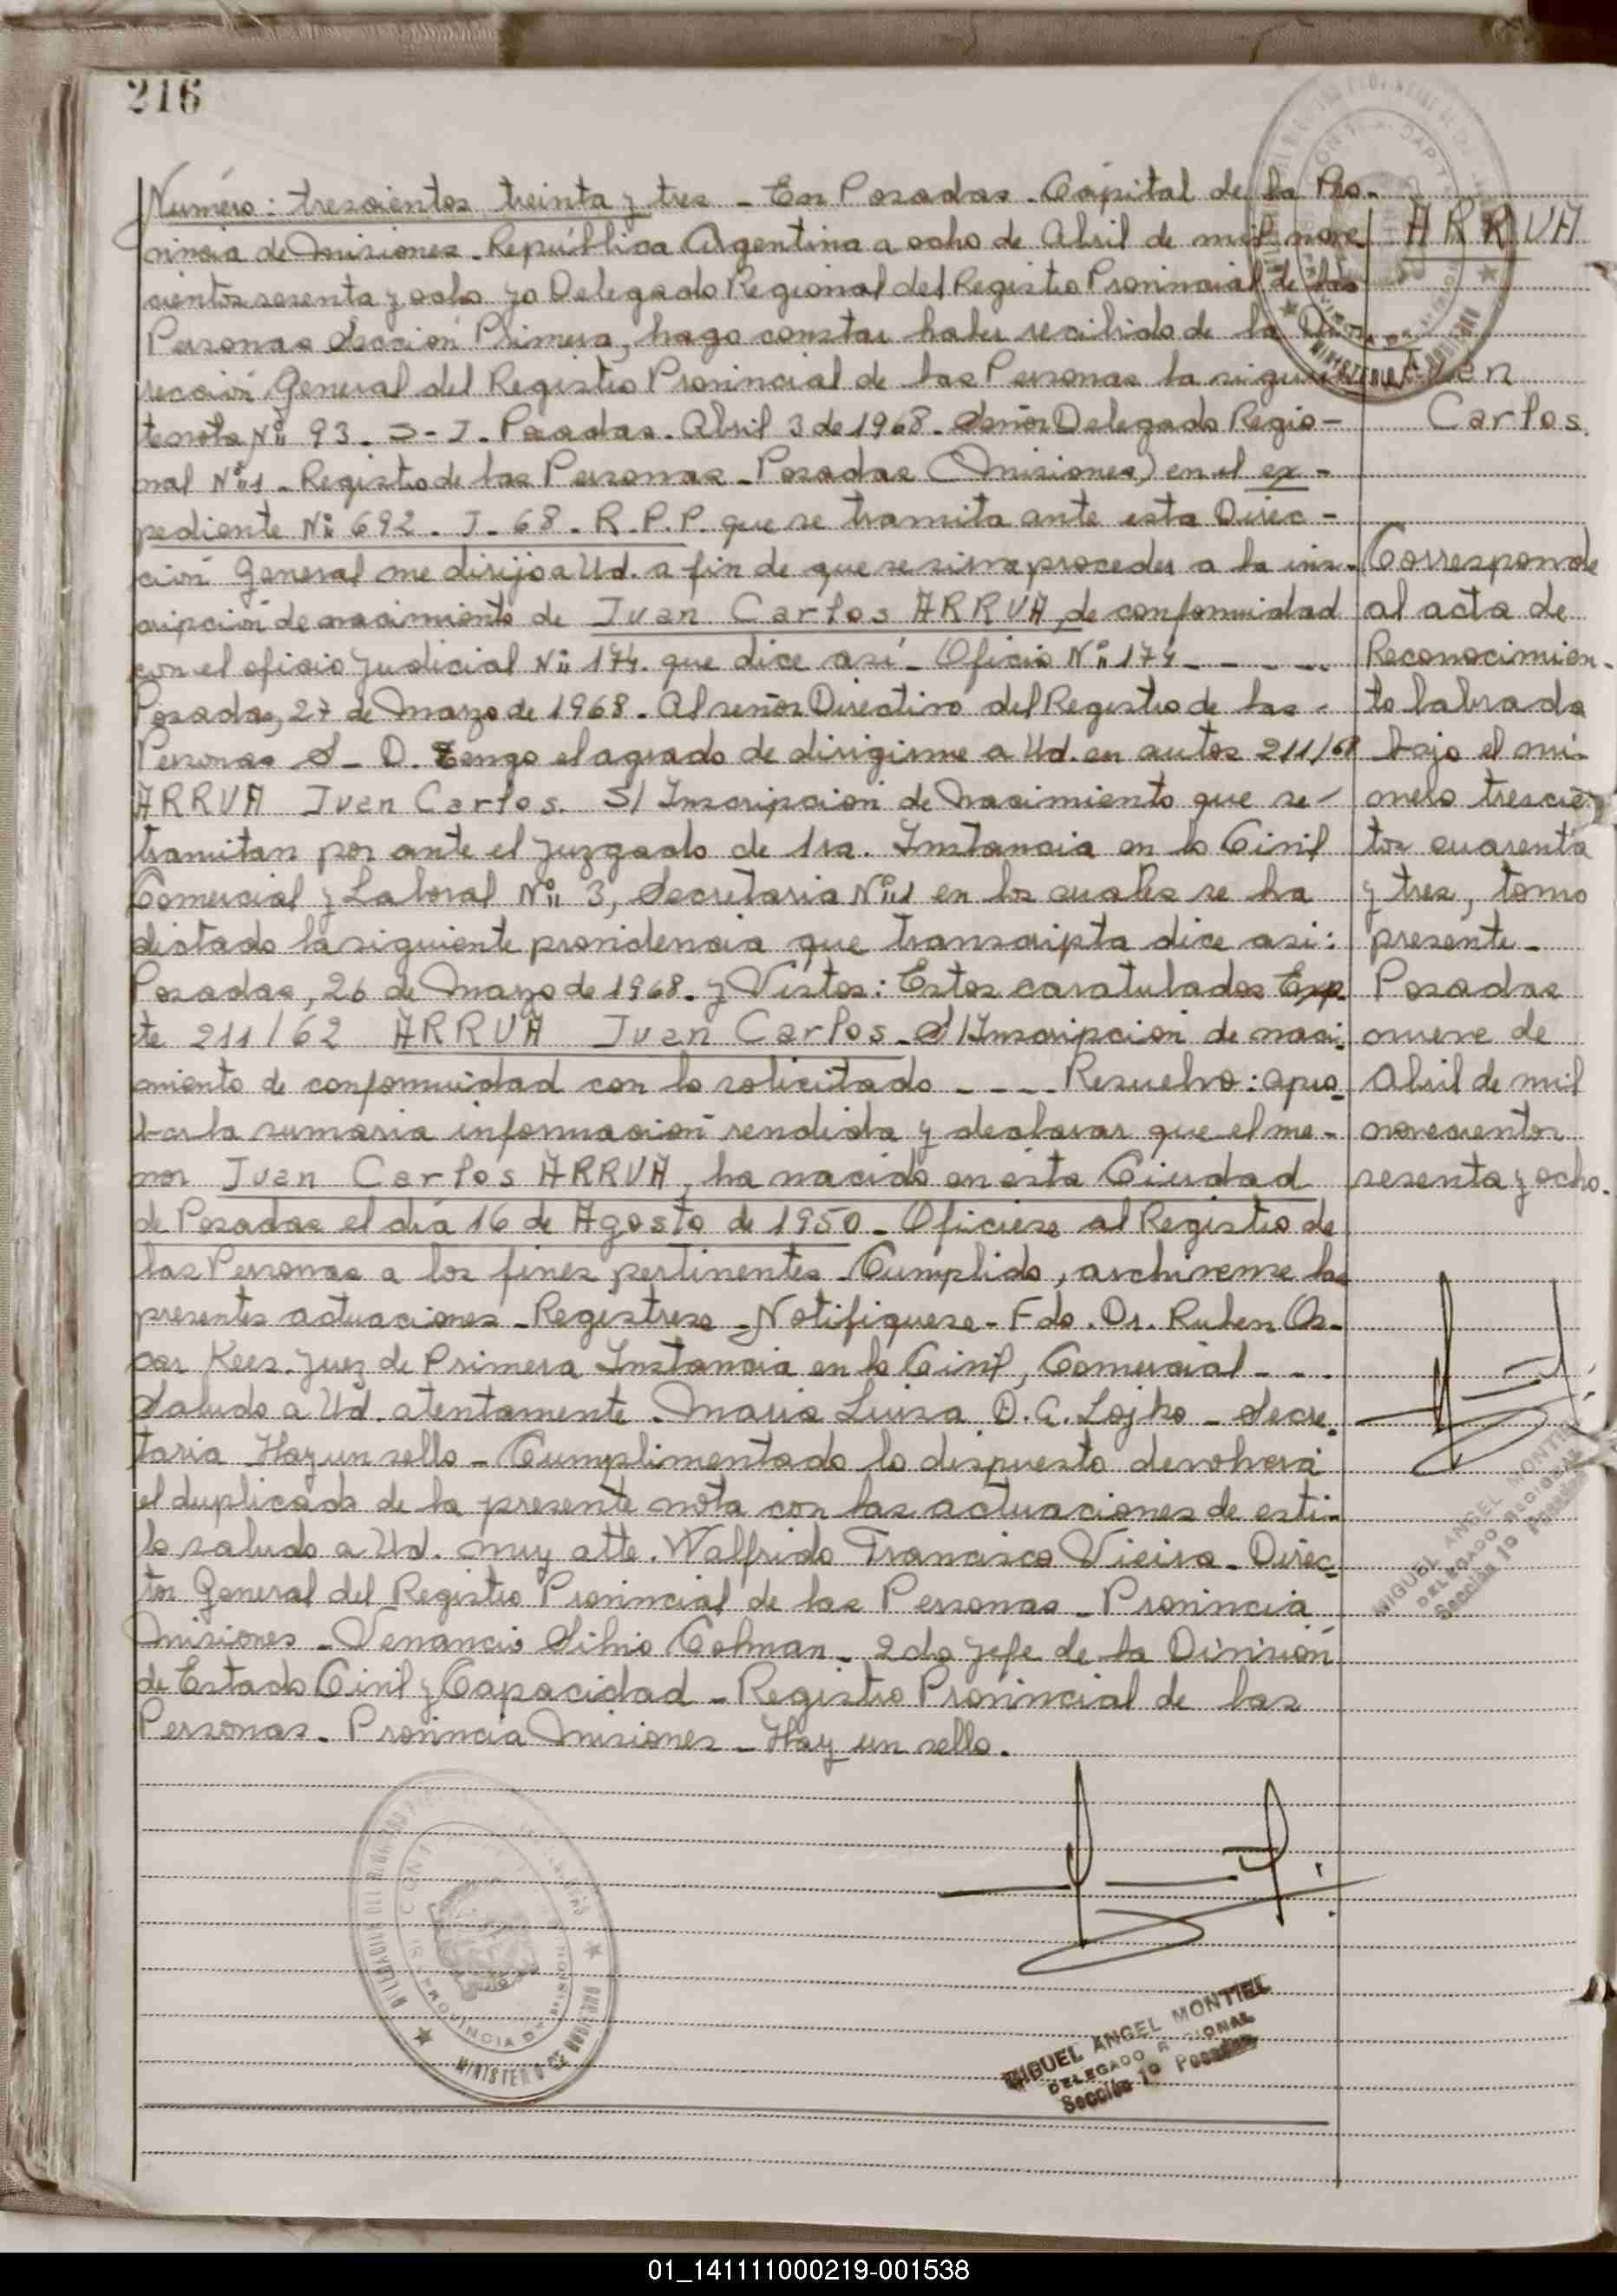 216
Número: trescientos treinta y tres - En Posadas. Capital de la Pro-
vincia de Misiones. República Argentina a ocho de Abril de mil nove
cientos sesenta y ocho yo Delegado Regional del Registro Provincial de las
Personas Sección Primera, hago constar haber recibido de la Di-
rección General del Registro Provincial de las Personas la siguien
te nota Nº 93. S-J. Posadas. Abril 3 de 1968. Señor Delegado Regio-
nal Nº 1 - Registro de las Personas - Posadas (Misiones) en el ex-
pediente Nº 692. J. 68. R.P.P. que se tramita ante esta Direc-
ción General me dirijo a Ud. a fin de que se sirva proceder a la ins-
cripción de nacimiento de Juan Carlos ARRUA, de conformidad
con el oficio judicial Nº 174. que dice así - Oficio Nº 174 - - - -
Posadas, 27 de Marzo de 1968. Al señor Directivo del Registro de las -
Personas S - D. Tengo el agrado de dirigirme a Ud. en autos 211/68
ARRUA Juan Carlos. S/ Inscripcion de Nacimiento que se -
tramitan por ante el Juzgado de 1ra. Instancia en lo Civil
Comercial y Laboral Nº 3, Secretaria Nº 1 en los cuales se ha
dictado la siguiente providencia que transcripta dice asi:
Posadas, 26 de Marzo de 1968. y Vistos: Estos caratulados Exp-
te 211/62 ARRUA Juan Carlos - S/Inscripcion de naci-
miento de conformidad con lo solicitado - - - - Resuelvo: apro-
bar la sumaria información rendida y declarar que el me-
nor Juan Carlos ARRUA, ha nacido en esta Ciudad
de Posadas el día 16 de Agosto de 1950 - Oficiese al Registro de
las Personas a los fines pertinentes. Cumplido, archivense las
presentes actuaciones - Registrese - Notifiquese - Fdo. Dr. Ruben Os-
car Kees. Juez de Primera Instancia en lo Civil, Comercial - - .
Saludo a Ud. atentamente. Maria Luisa D. G. Lojko - Secre-
taria Hay un sello - Cumplimentado lo dispuesto devolverá
el duplicado de la presente nota con las actuaciones de esti-
lo saludo a Ud. muy atte. Walfrido Francisco Vieira - Direc-
tor General del Registro Provincial de las Personas - Provincia
Misiones - Venancio Silvio Colman - 2do Jefe de la División
de Estado Civil y Capacidad - Registro Provincial de las
Personas. Provincia Misiones - Hay un sello.
ARRUA
Juan
Carlos.
Corresponde
al acta de
Reconocimien-
to labrada
bajo el nú-
mero trescien
tos cuarenta
y tres, tomo
presente -
Posadas
nueve de
Abril de mil
novecientos
sesenta y ocho.
MIGUEL ANGEL MONTIEL
DELEGADO REGIONAL
Sección 1º Posadas
MIGUEL ANGEL MONTIEL
DELEGADO REGIONAL
Sección 1º Posadas
PROVINCIA DE MISIONES
01_141111000219-001538